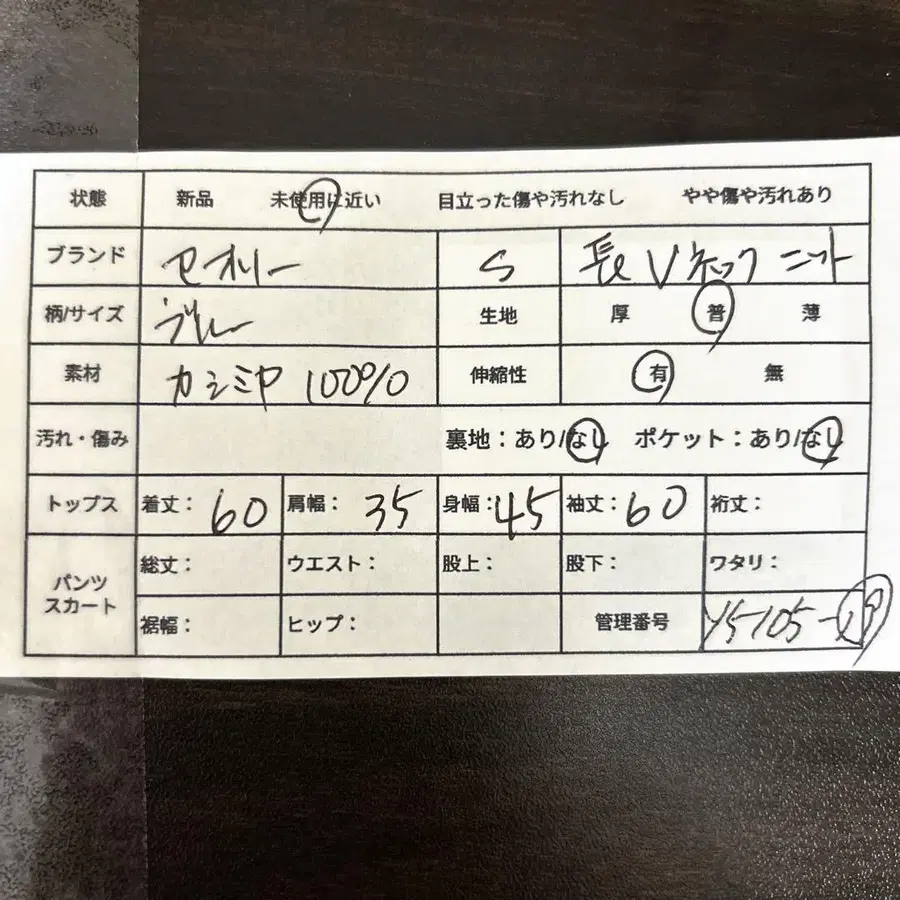 状態 新品 未使用に近い 目立った傷や汚れなし やや傷や汚れあり
ブランド セオリー S 長Vネック ニット
柄/サイズ ブルー 生地 厚 普 薄
素材 カシミヤ 100% 伸縮性 有 無
汚れ・傷み 裏地：あり/なし ポケット：あり/なし
トップス 着丈： 60 肩幅： 35 身幅： 45 袖丈： 60 裄丈：
パンツ
スカート
総丈： ウエスト： 股上： 股下： ワタリ：
裾幅： ヒップ： 管理番号